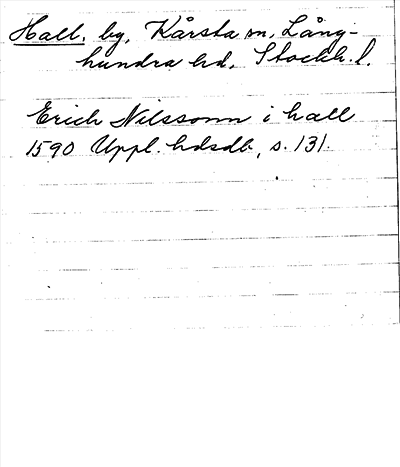 Hall, by, Kårsta sn, Lång-
hundra hd, Stockh. l.
Erich Nilssonn i hall
1590 Uppl. hdsdb, s. 131.